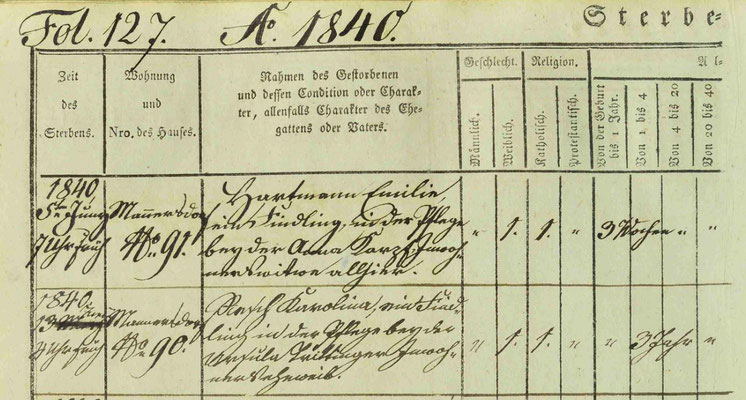 Fol. 127. Ao. 1840. Sterbe=
Zeit des Sterbens.
Wohnung und Nro. des Hauses.
Nahmen des Gestorbenen
und dessen Condition oder Charak=
ter, allenfalls Charakter des Ehe=
gattens oder Vaters.
Geschlecht.
Männlich.
Weiblich.
Religion.
Katholisch.
Protestantisch.
Al=
Von der Geburt bis 1 Jahr.
Von 1 bis 4
Von 4 bis 20
Von 20 bis 40
1840
5te Juny
7 Uhr früh
Mannersdorf
No. 91.
Hartmann Emilie,
ein Findling, in der Pflege
bey der Anna
wittwe allhier.
" 1. 1. " 3 Wochen " "
1840.
13
4 Uhr früh
Mannersdorf
No. 90.
Karolina, ein Find=
ling in der Pflege bey der
Ursula Inwoh=
" 1. 1. " " 3 Jahr "